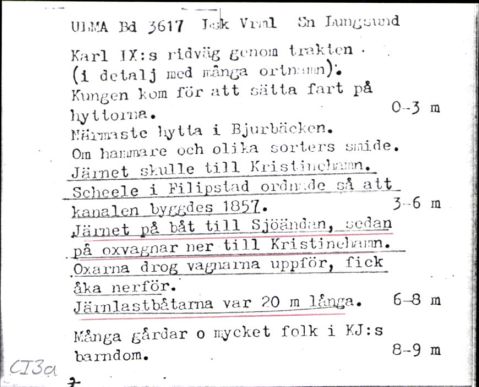 ULMA Bd 3617 Lsk Vrml Sn Lungsund
Karl IX:s ridväg genom trakten.
(i detalj med många ortnamn).
Kungen kom för att sätta fart på
hyttorna. 0-3 m
Närmaste hytta i Bjurbäcken.
Om hammare och olika sorters smide.
Järnet skulle till Kristinehamn.
Scheele i Filipstad ordnade så att
kanalen byggdes 1857. 3-6 m
Järnet på båt till Sjöändan, sedan
på oxvagnar ner till Kristinehamn.
Oxarna drog vagnarna uppför, fick
åka nerför.
Järnlastbåtarna var 20 m långa. 6-8 m
Många gårdar o mycket folk i KJ:s
barndom. 8-9 m
CI3a